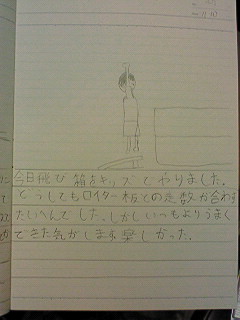 今日飛び箱をキッズでやりました。
どうしてもロイター板との歩数が合わず
たいへんでした。しかしいつもよりうまく
できた気がします楽しかった。